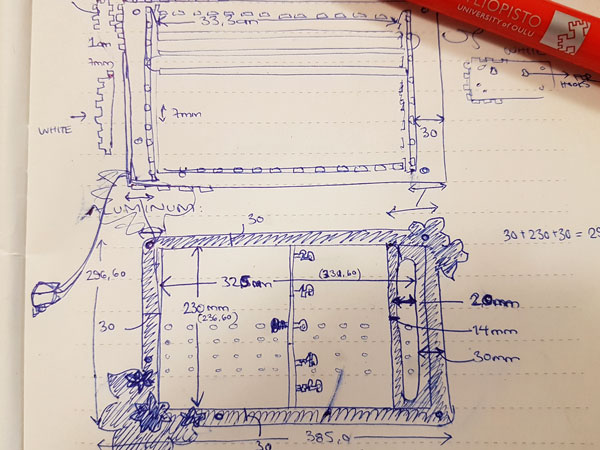 33,3cm
LIOPISTO
UNIVERSITY of OULU
WHITE
7mm
WHITE
7mm
30
ALUMINUM:
30
30+230+30 = 29
296,60
325mm
(331,60)
230mm
(236,60)
30
20mm
14mm
30mm
30
385,0